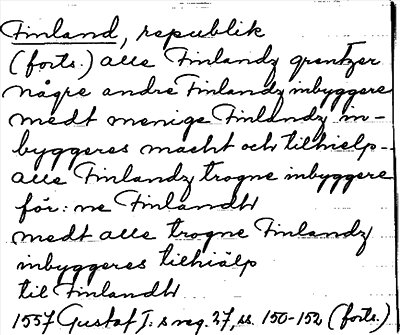 Finland, republik
(forts.) alle Finlandz grentzer
någre andre Finlandz inbyggere
medt menige Finlandz in-
byggeres macht och tilhielp-
alle Finlandz trogne inbyggere
för: ne Finlandh
medt alle trogne Finlandz
inbyggeres tilhiälp
til Finlandh
1557 Gustaf I:s reg. 27, ss. 150-152 (forts.)